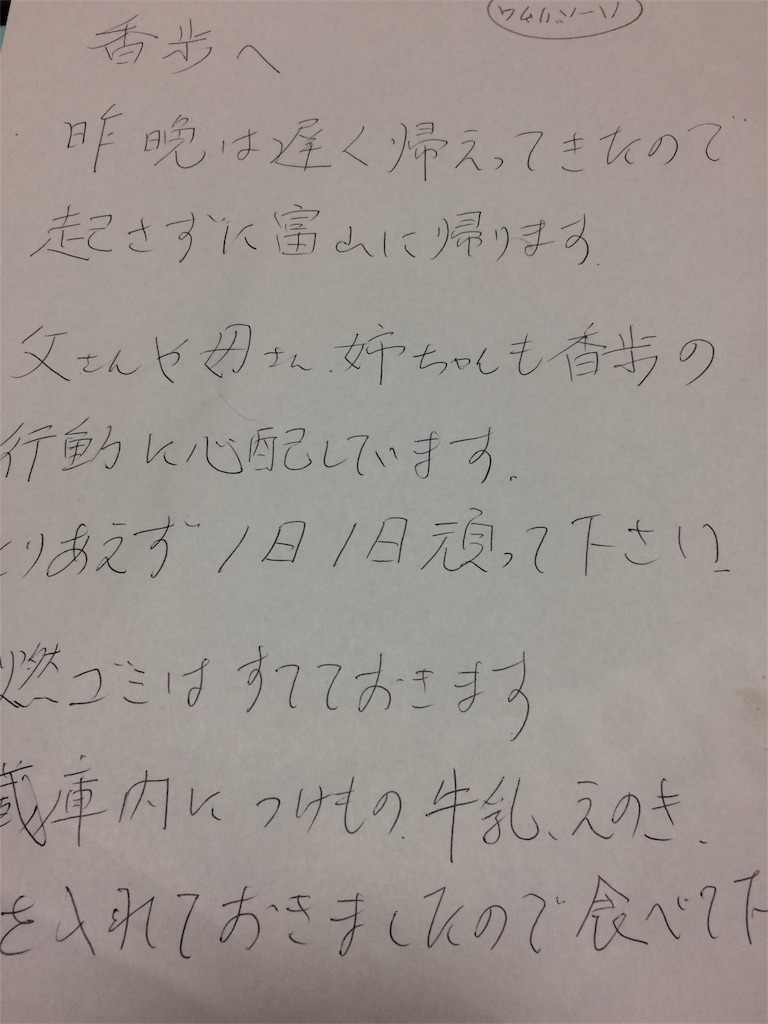 香歩へ
昨晩は遅く帰えってきたので
起さずに富山に帰ります.
父さんや母さん、姉ちゃんも香歩の
行動に心配しています.
とりあえず1日1日頑って下さい
燃ゴミはすてておきます
蔵庫内につけもの、牛乳、えのき、
を入れておきましたので食べて下